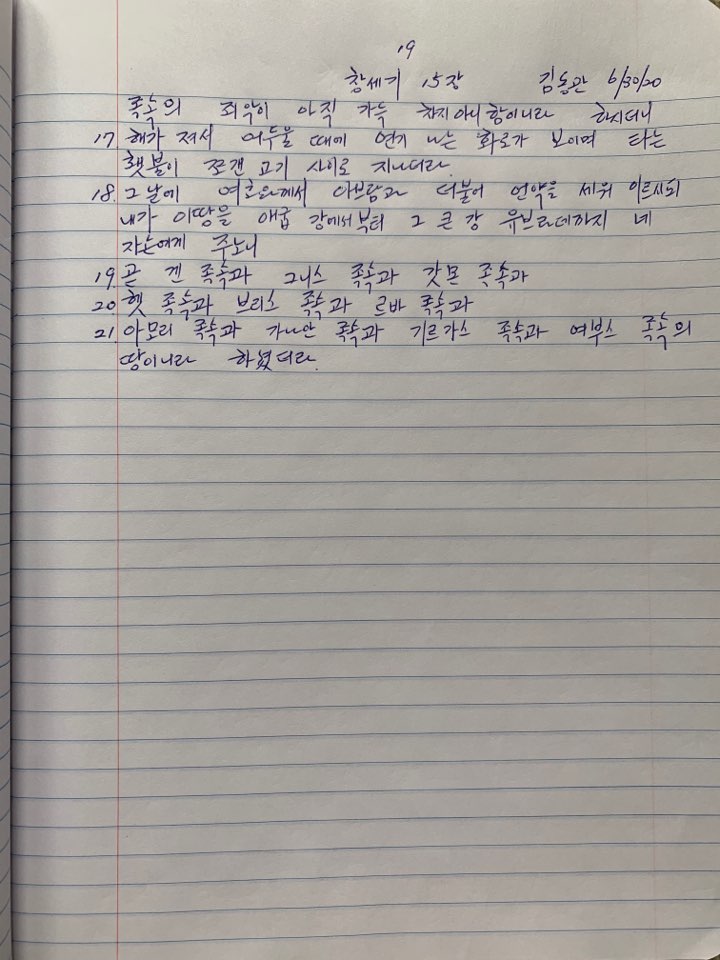 19
창세기 15장 김동관 6/30/20
족속의 죄악이 아직 가득 차지 아니함이니라 하시더니
17. 해가 져서 어두울 때에 연기 나는 화로가 보이며 타는
횃불이 쪼갠 고기 사이로 지나더라.
18. 그 날에 여호와께서 아브람과 더불어 언약을 세워 이르시되
내가 이땅을 애굽 강에서부터 그 큰 강 유브라데까지 네
자손에게 주노니
19. 곧 겐 족속과 그니스 족속과 갓몬 족속과
20. 헷 족속과 브리스 족속과 르바 족속과
21. 아모리 족속과 가나안 족속과 기르가스 족속과 여부스 족속의
땅이니라 하셨더라.